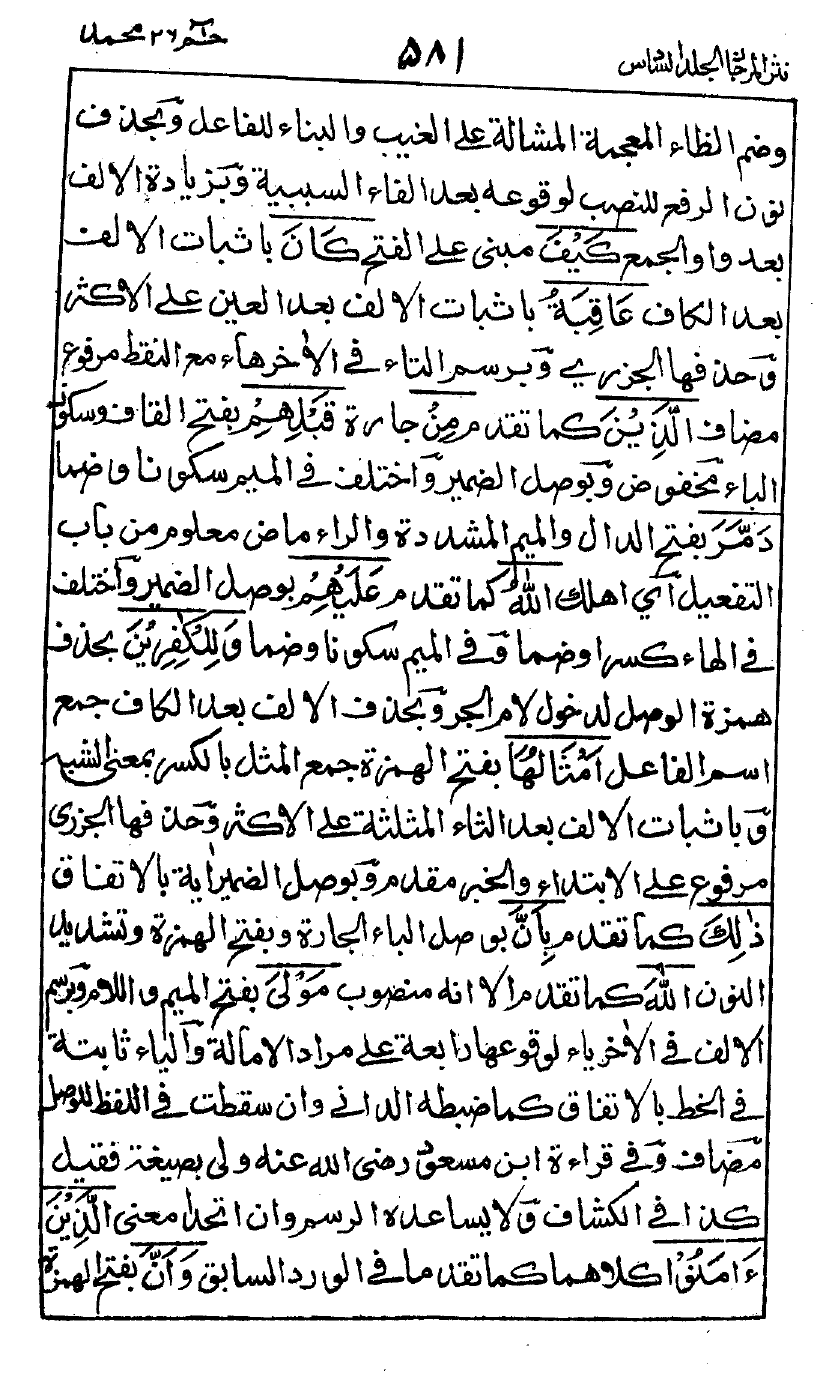 نثر المرجان الجلد السادس
٥٨١
حٰم ٢٦ محمد
وضم الظاء المعجمة المشالة على الغيب والبناء للفاعل وَبحذف
نون الرفع للنصب لوقوعه بعد الفاء السببية وَبزيادة الالف
بعد واو الجمع كَيْفَ مبنى على الفتح كَانَ باثبات الالف
بعد الكاف عَاقِبَةُ باثبات الالف بعد العين على الاكثر
وَحذفها الجزرى وَبرسم التاء فى الاٰخر هاء مع النقط مرفوع
مضاف الَّذِيْنَ كما تقدم مِنْ جارة قَبْلِهِمْ بفتح القاف وسكون
الباء مخفوض وَبوصل الضمير وَاختلف فى الميم سكونا وضما
دَمَّرَ بفتح الدال والميم المشددة والراء ماض معلوم من باب
التفعيل اَي اهلك اللهُ كما تقدم عَلَيْهِمْ بوصل الضمير وَاختلف
فى الهاء كسرا وضما وَفى الميم سكونا وضما وَلِلْكٰفِرِيْنَ بحذف
همزة الوصل لدخول لام الجر وَبحذف الالف بعد الكاف جمع
اسم الفاعل اَمْثَالُهَا بفتح الهمزة جمع المثل بالكسر بمعنى الشبيه
وَباثبات الالف بعد الثاء المثلثة على الاكثر وَحذفها الجزرى
مرفوع على الابتداء والخبر مقدم وَبوصل الضمير اٰية بالاتفاق
ذٰلِكَ كما تقدم بِاَنَّ بوصل الباء الجارة وبفتح الهمزة وتشديد
النون اللهَ كما تقدم الا انه منصوب مَوْلَى بفتح الميم واللام وَبرسم
الالف فى الاٰخر ياء لوقوعها رابعة على مراد الامالة وَالياء ثابتة
فى الخط بالاتفاق كما ضبطه الدانى وان سقطت فى اللفظ للوصل
مضاف وَفى قراءة ابن مسعود رضى الله عنه ولى بصيغة فعيل
كذا فى الكشاف وَلا يساعده الرسم وان اتحدا معنى الَّذِيْنَ
ءَامَنُوْا كلاهما كما تقدما فى الورد السابق وَاَنَّ بفتح الهمزة